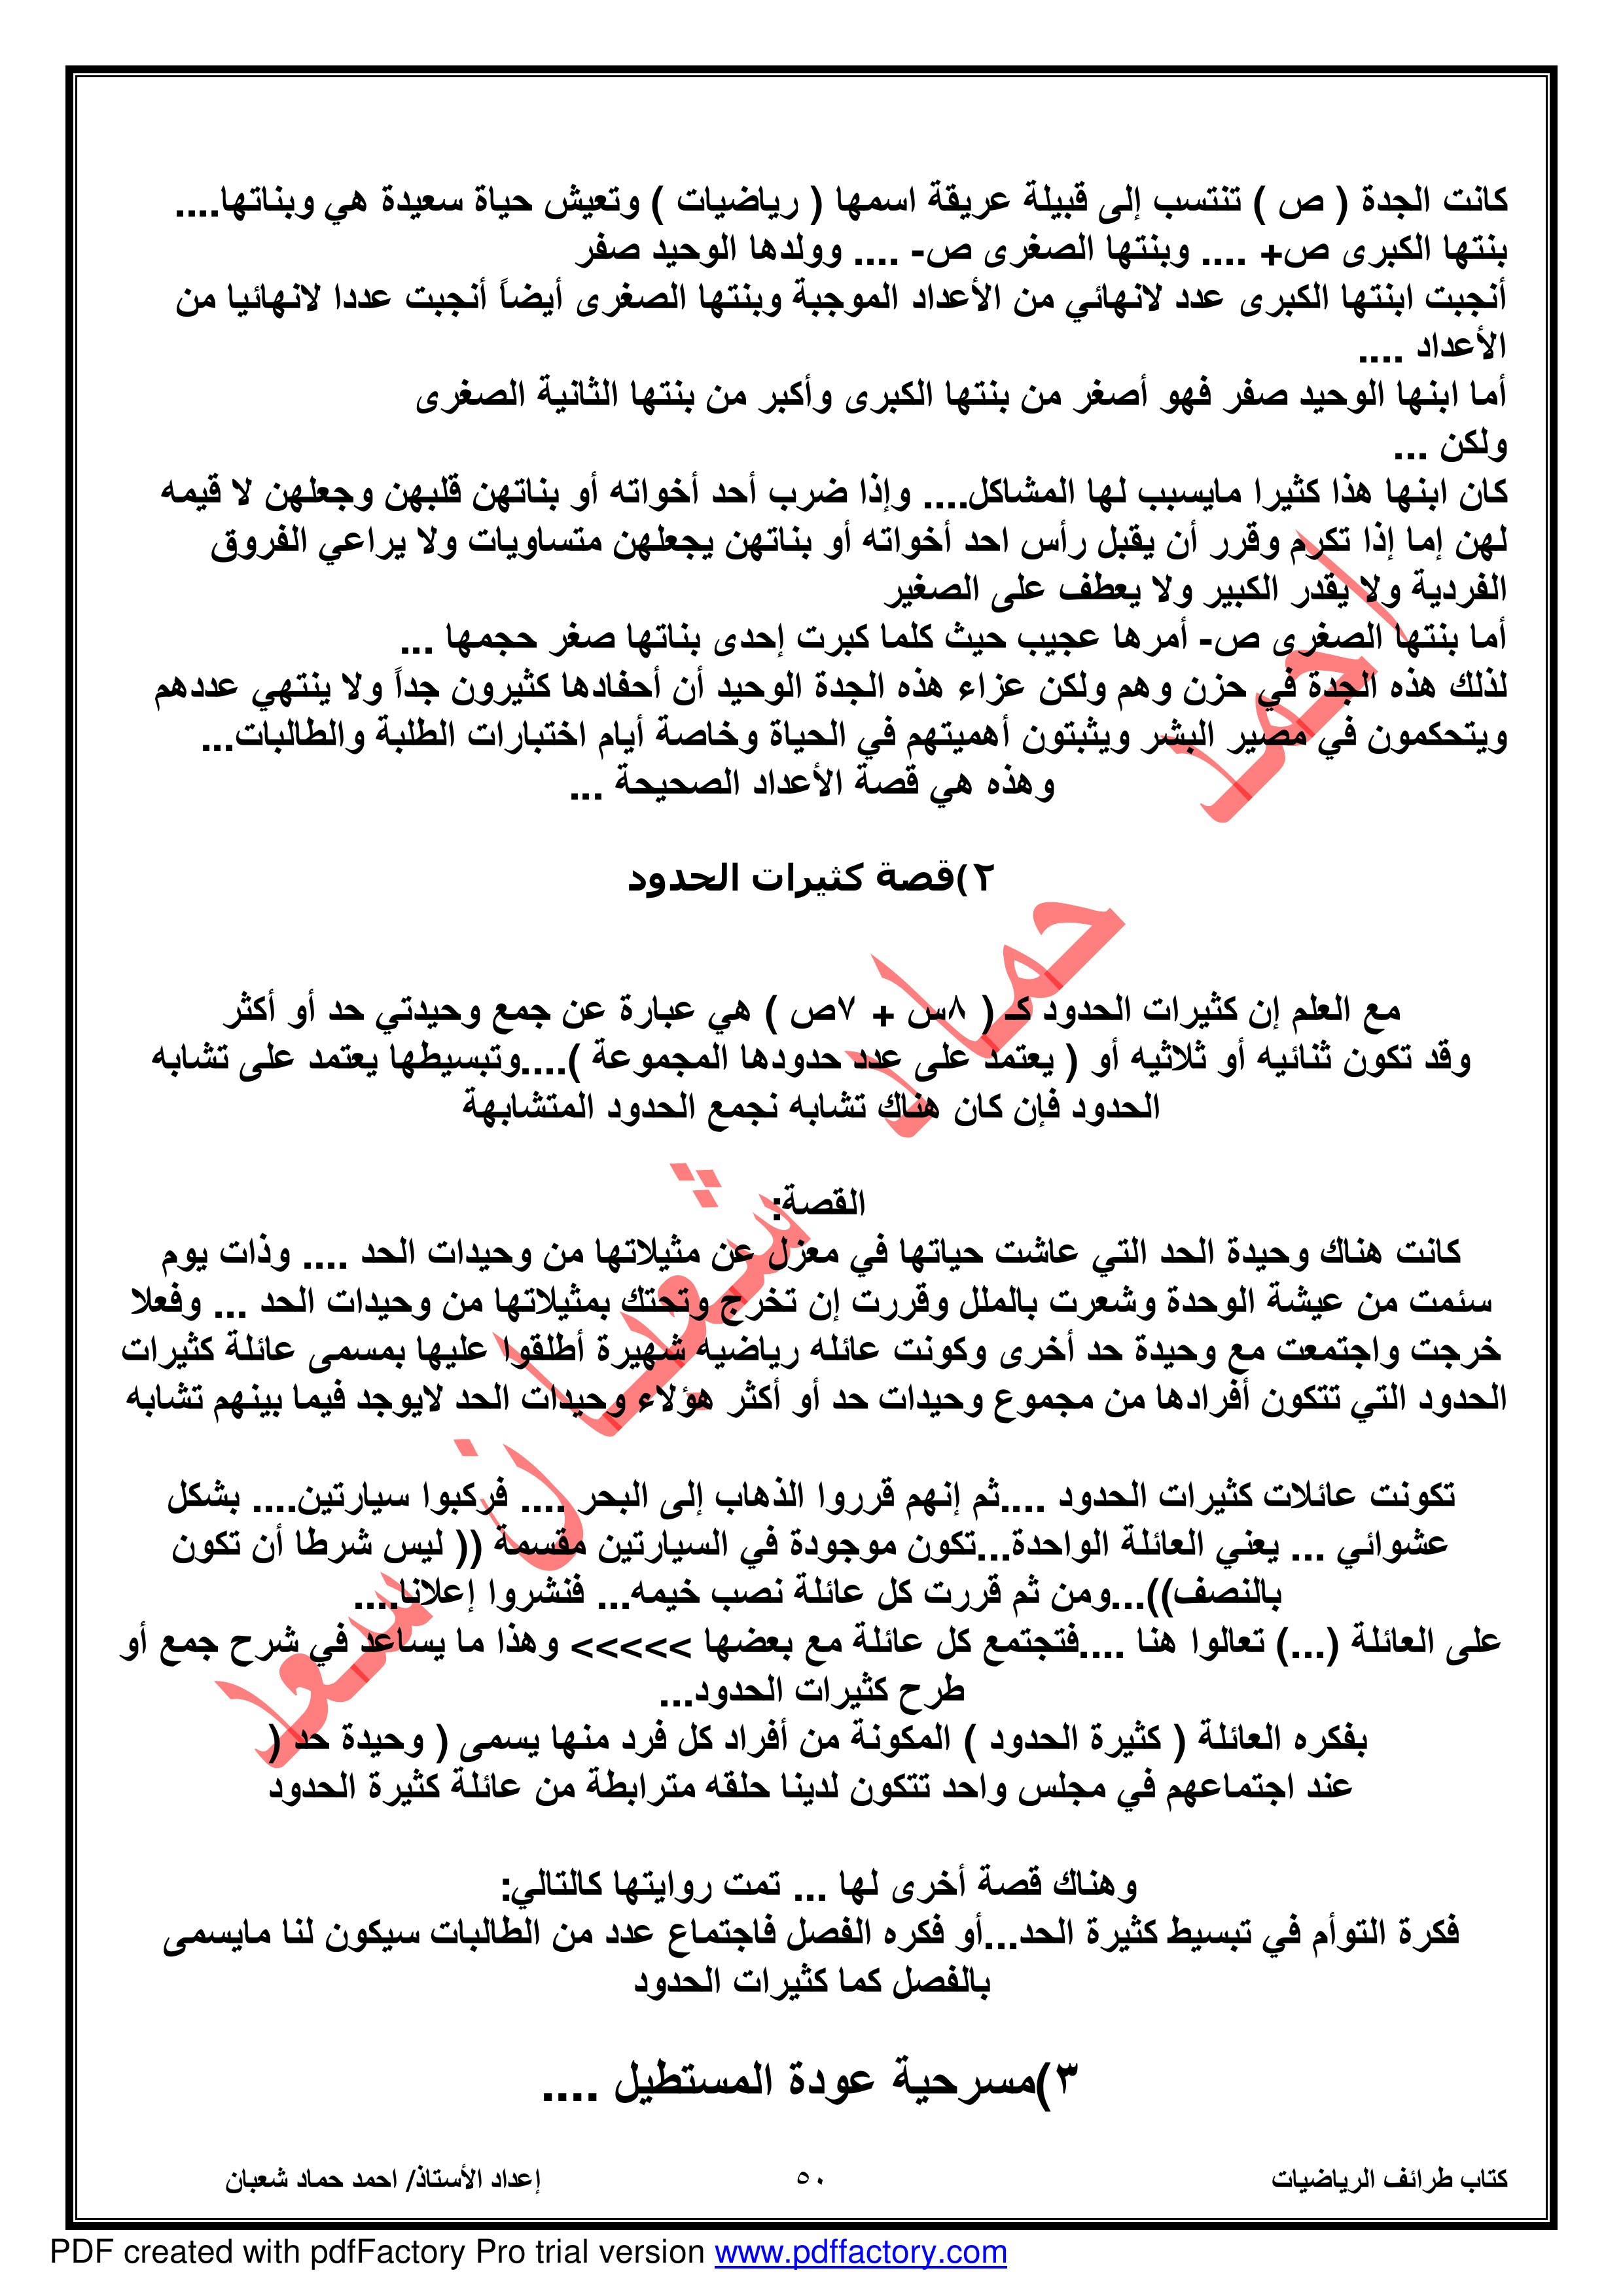 كانت الجدة ( ص ) تنتسب إلى قبيلة عريقة اسمها ( رياضيات ) وتعيش حياة سعيدة هي وبناتها....
بنتها الكبرى ص+ .... وبنتها الصغرى ص- .... وولدها الوحيد صفر
أنجبت ابنتها الكبرى عدد لانهائي من الأعداد الموجبة وبنتها الصغرى أيضاً أنجبت عددا لانهائيا من
الأعداد ....
أما ابنها الوحيد صفر فهو أصغر من بنتها الكبرى وأكبر من بنتها الثانية الصغرى
ولكن ...
كان ابنها هذا كثيرا مايسبب لها المشاكل.... وإذا ضرب أحد أخواته أو بناتهن قلبهن وجعلهن لا قيمه
لهن إما إذا تكرم وقرر أن يقبل رأس احد أخواته أو بناتهن يجعلهن متساويات ولا يراعي الفروق
الفردية ولا يقدر الكبير ولا يعطف على الصغير
أما بنتها الصغرى ص- أمرها عجيب حيث كلما كبرت إحدى بناتها صغر حجمها ...
لذلك هذه الجدة في حزن وهم ولكن عزاء هذه الجدة الوحيد أن أحفادها كثيرون جداً ولا ينتهي عددهم
ويتحكمون في مصير البشر ويثبتون أهميتهم في الحياة وخاصة أيام اختبارات الطلبة والطالبات...
وهذه هي قصة الأعداد الصحيحة ...
٢)قصة كثيرات الحدود
مع العلم إن كثيرات الحدود كـ ( ٨س + ٧ص ) هي عبارة عن جمع وحيدتي حد أو أكثر
وقد تكون ثنائيه أو ثلاثيه أو ( يعتمد على عدد حدودها المجموعة )....وتبسيطها يعتمد على تشابه
الحدود فإن كان هناك تشابه نجمع الحدود المتشابهة
القصة:
كانت هناك وحيدة الحد التي عاشت حياتها في معزل عن مثيلاتها من وحيدات الحد .... وذات يوم
سئمت من عيشة الوحدة وشعرت بالملل وقررت إن تخرج وتحتك بمثيلاتها من وحيدات الحد ... وفعلا
خرجت واجتمعت مع وحيدة حد أخرى وكونت عائله رياضيه شهيرة أطلقوا عليها بمسمى عائلة كثيرات
الحدود التي تتكون أفرادها من مجموع وحيدات حد أو أكثر هؤلاء وحيدات الحد لايوجد فيما بينهم تشابه
تكونت عائلات كثيرات الحدود ....ثم إنهم قرروا الذهاب إلى البحر .... فركبوا سيارتين.... بشكل
عشوائي ... يعني العائلة الواحدة...تكون موجودة في السيارتين مقسمة (( ليس شرطا أن تكون
بالنصف))...ومن ثم قررت كل عائلة نصب خيمه... فنشروا إعلانا....
على العائلة (...) تعالوا هنا ....فتجتمع كل عائلة مع بعضها >>>>> وهذا ما يساعد في شرح جمع أو
طرح كثيرات الحدود...
بفكره العائلة ( كثيرة الحدود ) المكونة من أفراد كل فرد منها يسمى ( وحيدة حد (
عند اجتماعهم في مجلس واحد تتكون لدينا حلقه مترابطة من عائلة كثيرة الحدود
وهناك قصة أخرى لها ... تمت روايتها كالتالي:
فكرة التوأم في تبسيط كثيرة الحد...أو فكره الفصل فاجتماع عدد من الطالبات سيكون لنا مايسمى
بالفصل كما كثيرات الحدود
٣)مسرحية عودة المستطيل ....
كتاب طرائف الرياضيات ٥٠ إعداد الأستاذ/ احمد حماد شعبان
PDF created with pdfFactory Pro trial version www.pdffactory.com
احمد حماد شعبان سعد